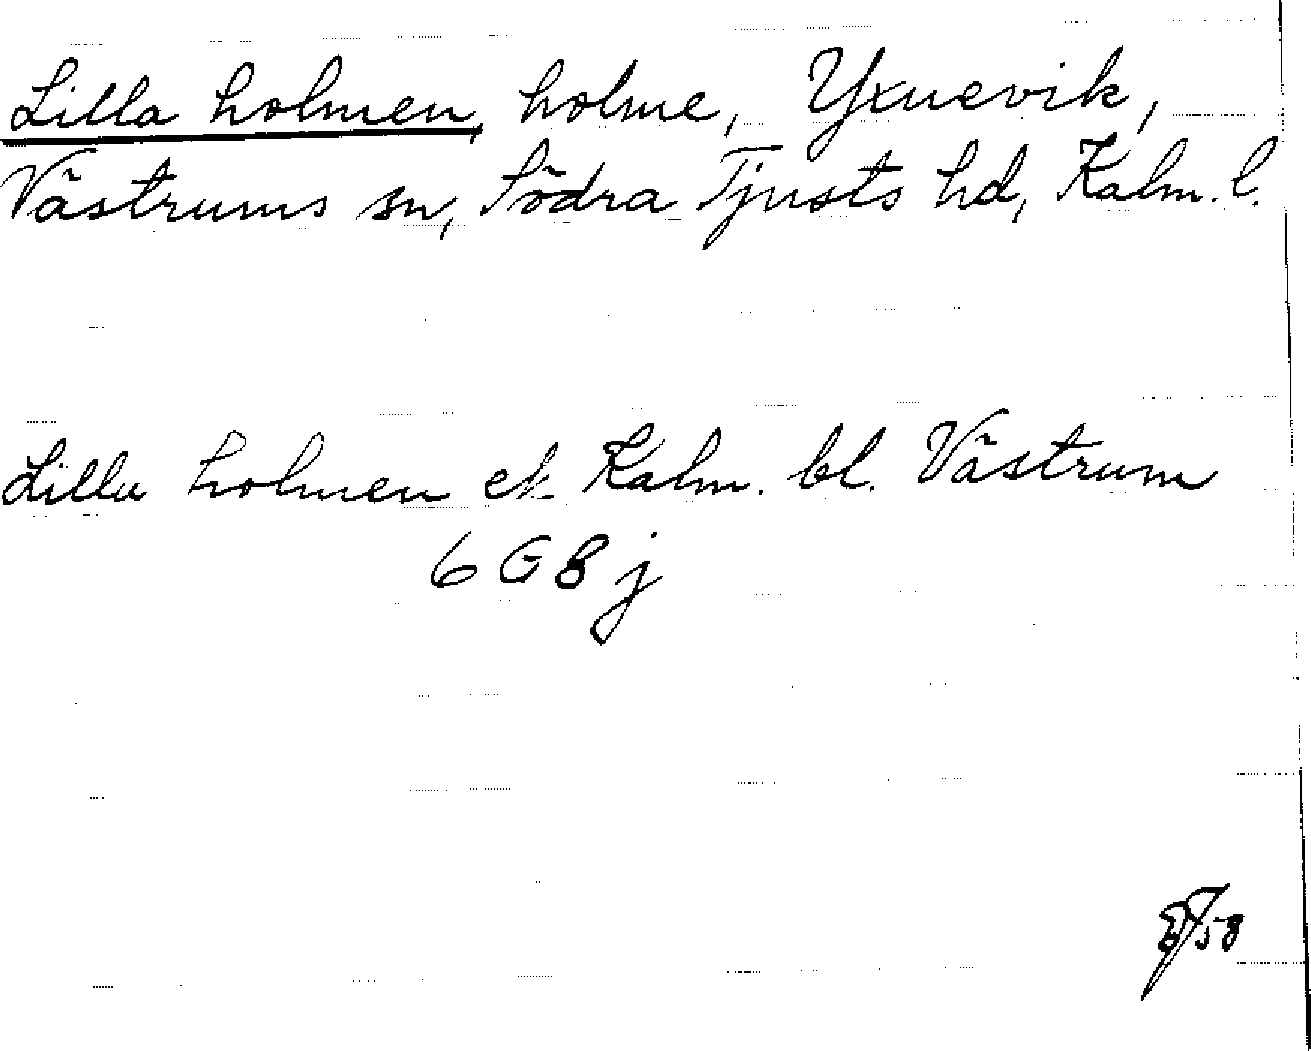 Lilla holmen, holme, Yxnevik,
Västrums sn, Södra Tjusts hd, Kalm. l.
Lilla holmen ek Kalm. bl. Västrum
6 G 8 j
58